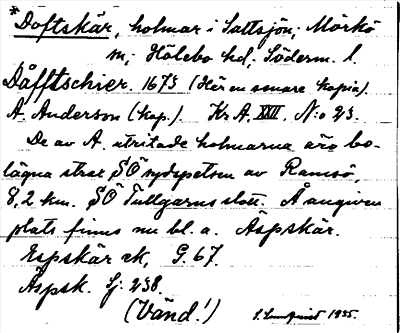 *Doftskär, holmar i Saltsjön; Mörkö
sn; Hölebo hd, Söderm. l.
Dåfftschier. 1673 (Här en senare kopia).
A. Anderson (kap.). Kr.A. XXII. N:o 23.
De av A. utritade holmarna äro be-
lägna strax SÖ sydspetsen av Ramsö,
8,2 km. SÖ Tullgarns slott. Å angiven
plats finns nu bl. a. Äspskär.
Espskär ek, G. 67.
Äspsk. Sj. 238.
(Vänd!) 1935.